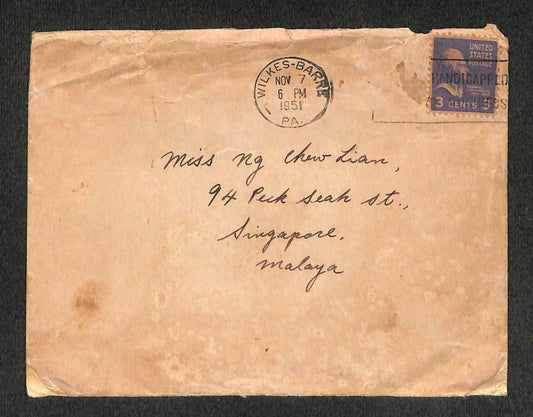 WILKES-BARRE
NOV 7
6 PM
1951
PA.
UNITED
STATES
POSTAGE
HANDICAPPED
3 CENTS 3
Miss Ng Chew Lian,
94 Peck Seah St.,
Singapore.
Malaya